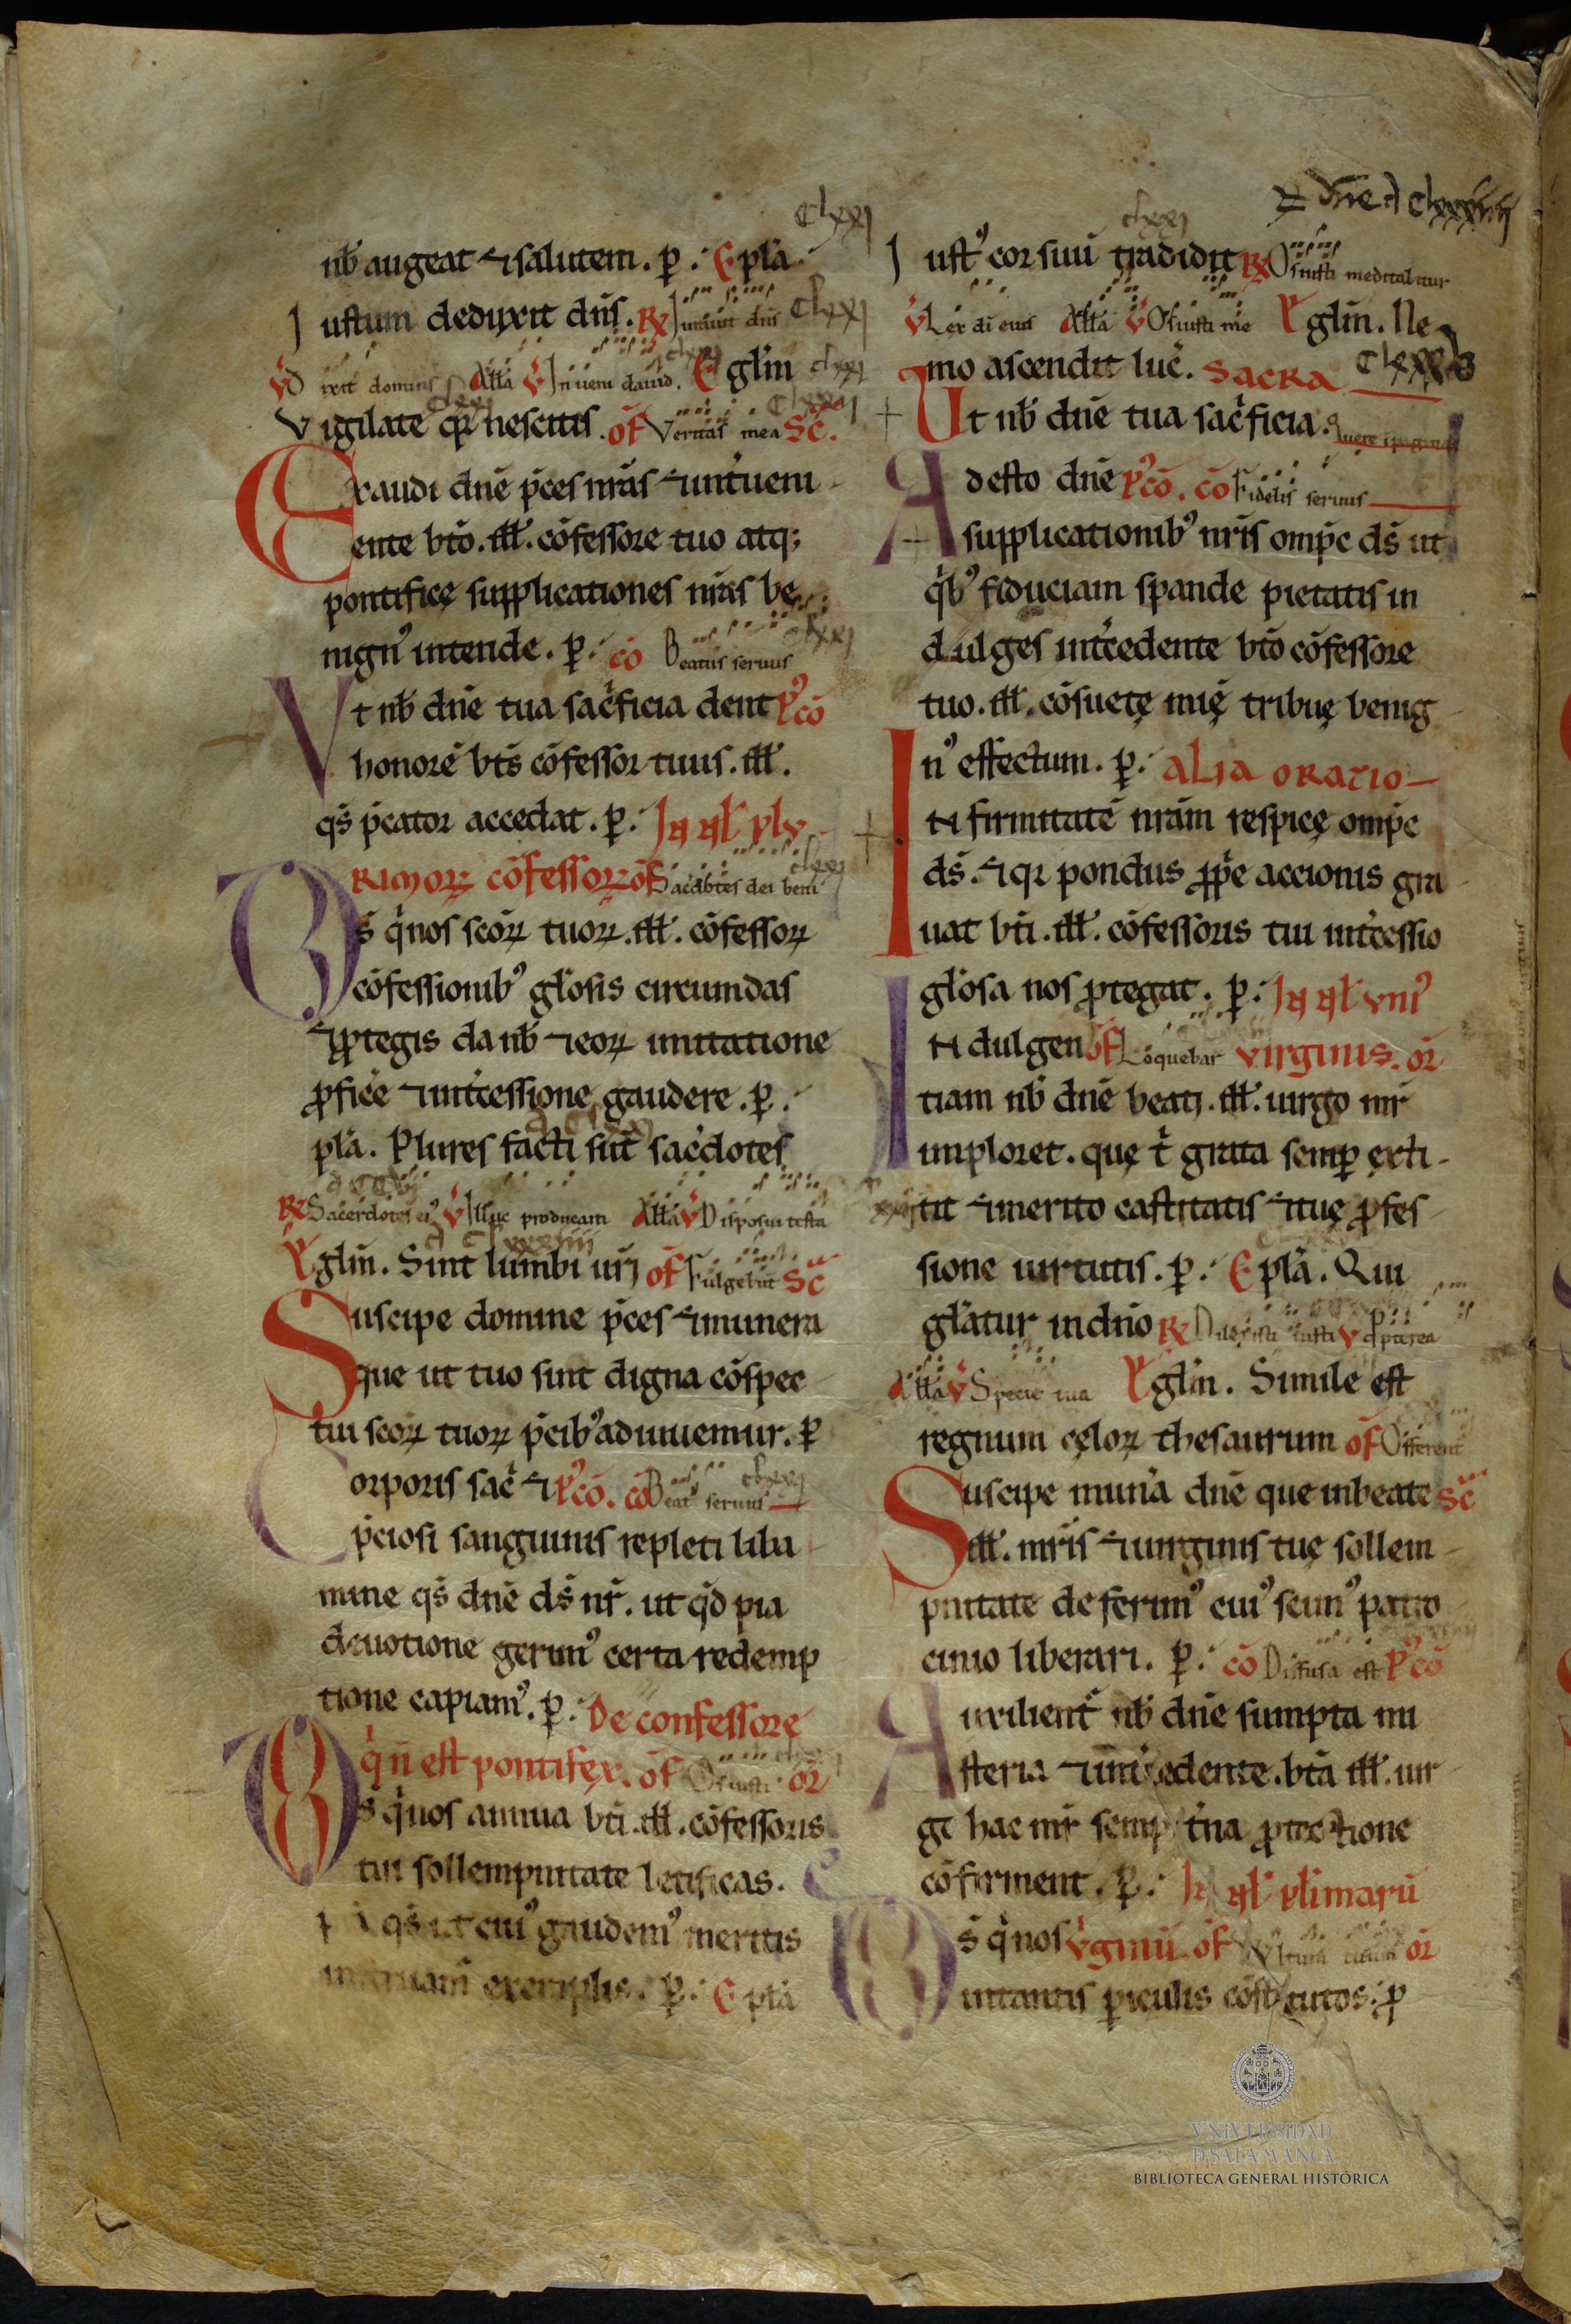 clxxj
nb̄ augeat ⁊ salutem. p̄. Epl̄a.
Iustum deduxit dn̄s. R͞x Iurauit dn̄s clxxj
V͞ Dixit dominus All̄a V͞ Inueni dauid. Egl̄m clxxj
Vigilate qr̄ nescitis. of̄ Veritas mea Sc̄.
Exaudi dn̄e p̄ces nr̄as ⁊ int̄ueni
ente bt̄o. ill̄. cōfessore tuo atq;
pontificę supplicationes nr̄as be
nignꝰ intende. p̄. cō Beatus seruus clxxj
Vt nb̄ dn̄e tua sac̄ficia dent Pꝰcō
honorē bt̄s cōfessor tuus. ill̄.
qs̄ p̄cator accedat. p̄. In nl̄ plu
rimoꝝ cōfessoꝝ of̄ Sacdōtes dei beni clxxj
Ds̄ q̄ nos sc̄oꝝ tuoꝝ. ill̄. cōfessoꝝ
cōfessionibꝰ gl̄osis circumdas
⁊ ꝓtegis da nb̄ ⁊ eoꝝ imitatione
ꝓfic̄e ⁊ int̄cessione gaudere. p̄.
pl̄a. Plures facti sūt sac̄dotes
R͞x Sacerdotes eiꝰ V͞ Illuc producam All̄a V͞ Disposui testa
Egl̄m. Sint lumbi ur̄j of̄ Fulgebūt Sc̄
Suscipe domine p̄ces ⁊ munera
que ut tuo sint digna cōspec
tui sc̄oꝝ tuoꝝ p̄cibꝰ adiuuemur. p̄
Corporis sac̄ ⁊ Pꝰcō. cō Beatꝰ seruus clxxj
p̄ciosi sanguinis repleti liba
mine qs̄ dn̄e ds̄ nr̄. ut qd̄ pia
deuotione gerimꝰ certa redemp
tione capiamꝰ. p̄. De confessore
q̄ n̄ est pontifex. of̄ Os iusti or̄
Ds̄ q̄ nos annua bt̄i. ill̄. cōfessoris
tui sollempnitate letificas.
qs̄ ut cuiꝰ gaudemꝰ meritis
instruam̄ exemplis. p̄. Epl̄a
clxxj
Iustꝰ cor suū tradidit R͞x Os iusti meditabitur
V͞ Lex dī eius All̄a V͞ Os iusti me Egl̄m. Ne
mo ascendit luc̄. Sacra
Ut nb̄ dn̄e tua sac̄ficia.
Adesto dn̄e Pꝰcō. cō Fidelis seruus
supplicationibꝰ nr̄is omp̄c ds̄ ut
q̄bꝰ fiduciam sp̄ande pietatis in
dulges int̄cedente bt̄o cōfessore
tuo. ill̄. cōsuetę mię tribuę benig
nꝰ effectum. p̄. Alia oratio
Infirmitatē nr̄am respicę omp̄c
ds̄. ⁊ qr̄ pondus ꝓp̄e accionis gra
uat bt̄i. ill̄. cōfessoris tui int̄cessio
gl̄osa nos ꝓtegat. p̄. In nl̄ uniꝰ
Indulgen of̄ Loquebar uirginis. or̄
tiam nb̄ dn̄e beatj. ill̄. uirgo mr̄
imploret. quę t̄ grata semp̄ exti
tit ⁊ merito castitatis ⁊ tuę ꝓfes
sione uirtutis. p̄. Epl̄a. Qui
gl̄atur in dn̄o R͞x Dilexisti iusti V͞ ꝓpterea
All̄a V͞ Specie tua Egl̄m. Simile est
regnum cęloꝝ thesaurum of̄ Offerent
Suscipe mun̄a dn̄e que in beate Sc̄
ill̄. mr̄is ⁊ uirginis tuę sollem
pnitate deferimꝰ cuiꝰ scimꝰ patro
cinio liberari. p̄. cō Diffusa est Pꝰcō
Auxilient̄ nb̄ dn̄e sumpta mi
steria ⁊ int̄cedente. bt̄a ill̄. uir
gi hac mr̄ sempit̄na ꝓtectione
cōfirment. p̄. In nl̄ pl̄imarū
Ds̄ q̄ nos ūginū. of̄ or̄
in tantis p̄iculis cōstitutos. ꝓ
VNiVERSiDAD
D SALAMANCA
BIBLIOTECA GENERAL HISTÓRICA